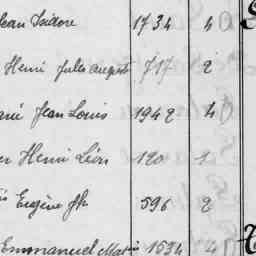 Jean Isidore 1734 4
Henri Jules August 717 2
Jean Louis 1942 4
Henri Léon 120 1
Eugène fls 596 2
Emmanuel 1534 4